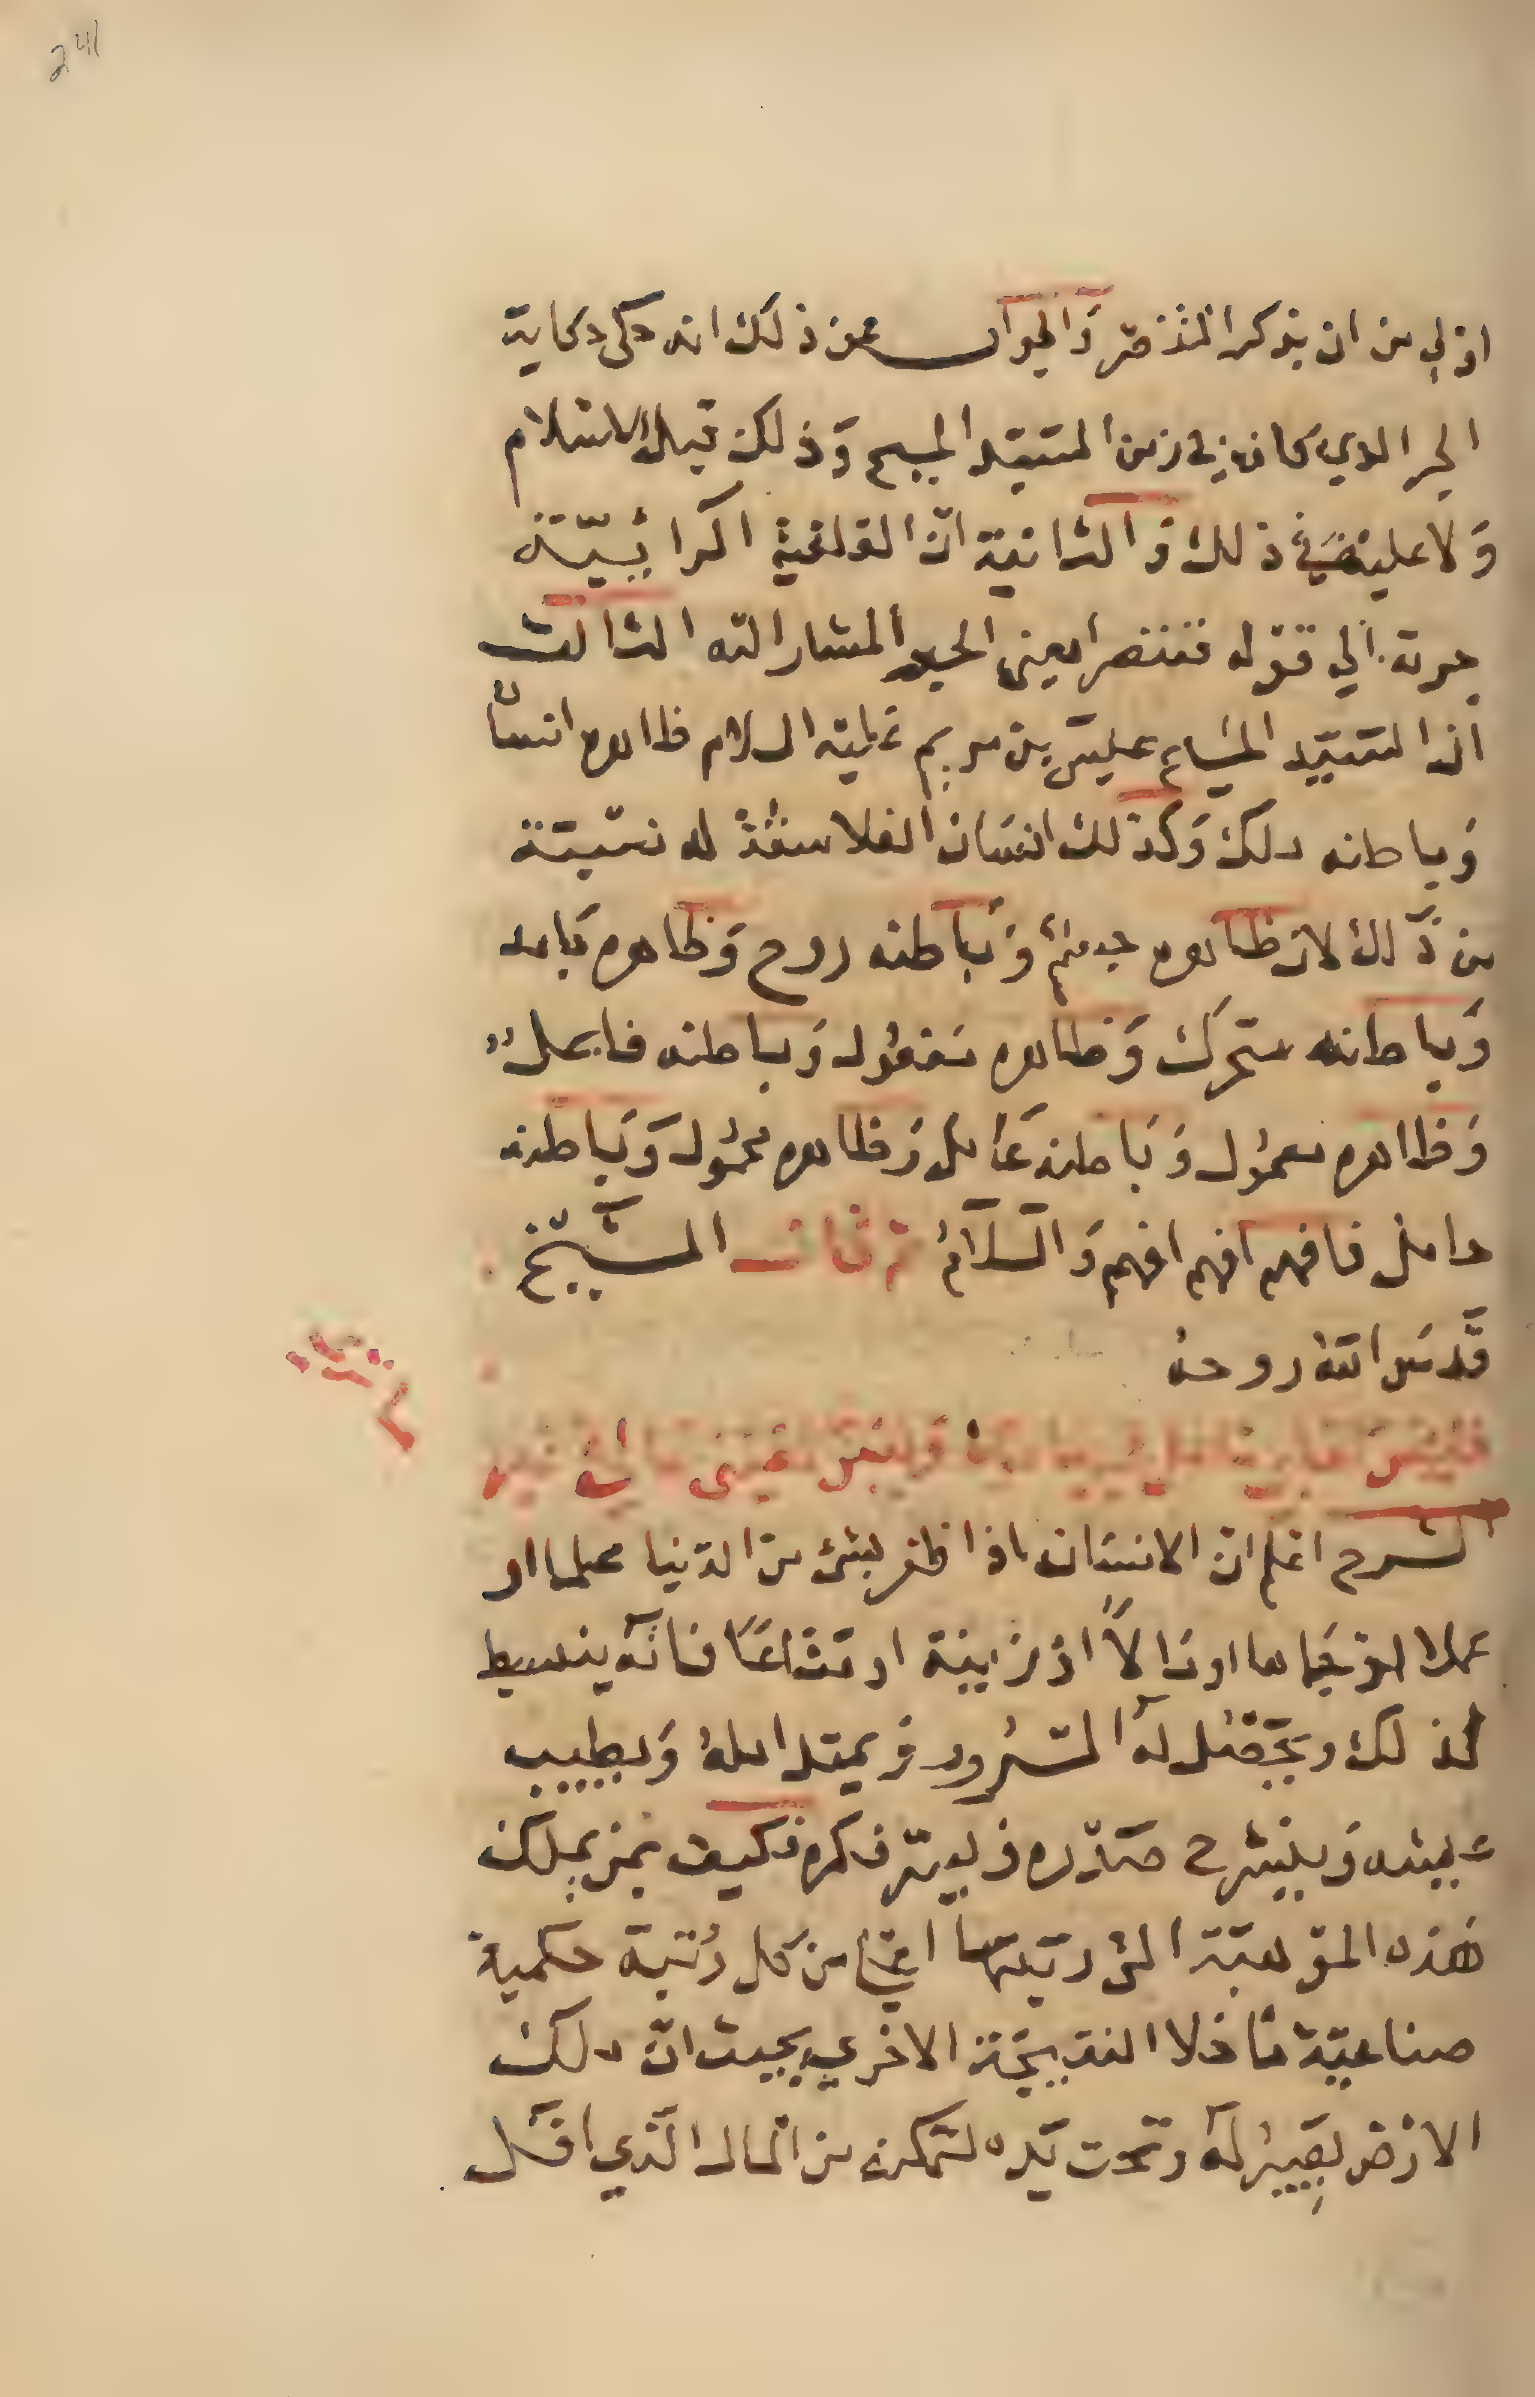 241
اولي من ان يذكر التنصر والجواب عن ذلك انه حكى حكاية
الحبر الذي كان في زمن السيد المسيح وذلك قبل الاسلام
ولا عليه في ذلك والثانية ان القلفة
جرت الي قوله فتنصر يعني الحبر المشار اليه الثالث
ان السيد المسيح عليس بن مريم عليه السلام ظاهره انسان
وباطنه ملك وكذلك انسان الفلاسفة له نسبة
من ذلك لان ظاهره جسم وباطنه روح وظاهره جامد
وباطنه متحرك وظاهره مفعول وباطنه فاعل
وظاهره معمول وباطنه عامل وظاهره محمول وباطنه
حامل فافهم افهم افهم والسلام ثم قال الشيخ
قدس الله روحه
الشرح اعلم ان الانسان اذا ظفر بشئ من الدنيا علما او
عملا او جاها او مالا او زينة او متاعا فانه ينبسط
لذلك ويحصل له السرور ويمتد امله ويطيب
عيشه وينشرح صدره فكره فكيف بمن يملك
هذه الموهبة التي رتبتها اعلى من كل رتبة حكمية
صناعية ما خلا النتيجة الاخري بحيث ان ملك
الارض يصير له وتحت يده لتمكنه من المال الذي اقل